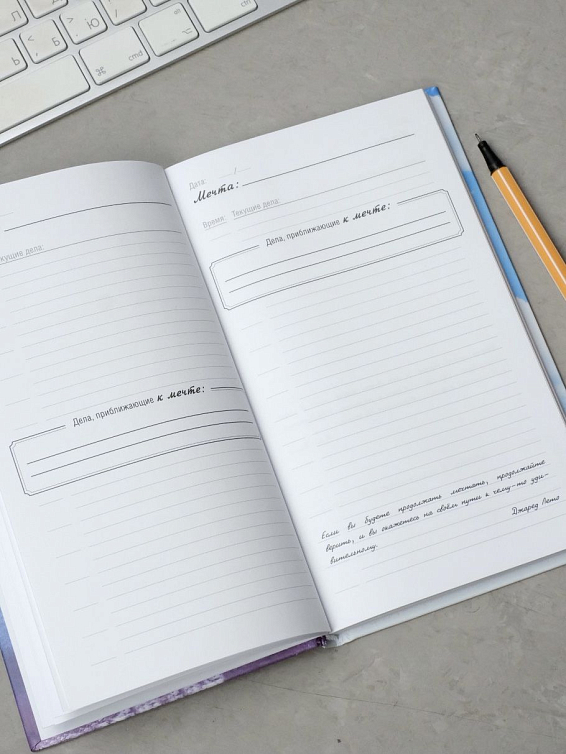 П
Р
О
Ь
Б
Ю
Ь
cmd
⌘
⌥
кущие дела:
Дела, приближающие к мечте:
Дата: /
Мечта:
Время: Текущие дела:
Дела, приближающие к мечте:
Если вы будете продолжать мечтать, продолжайте
верить, и вы окажетесь на своём пути к чему-то уди-
вительному.
Джаред Лето